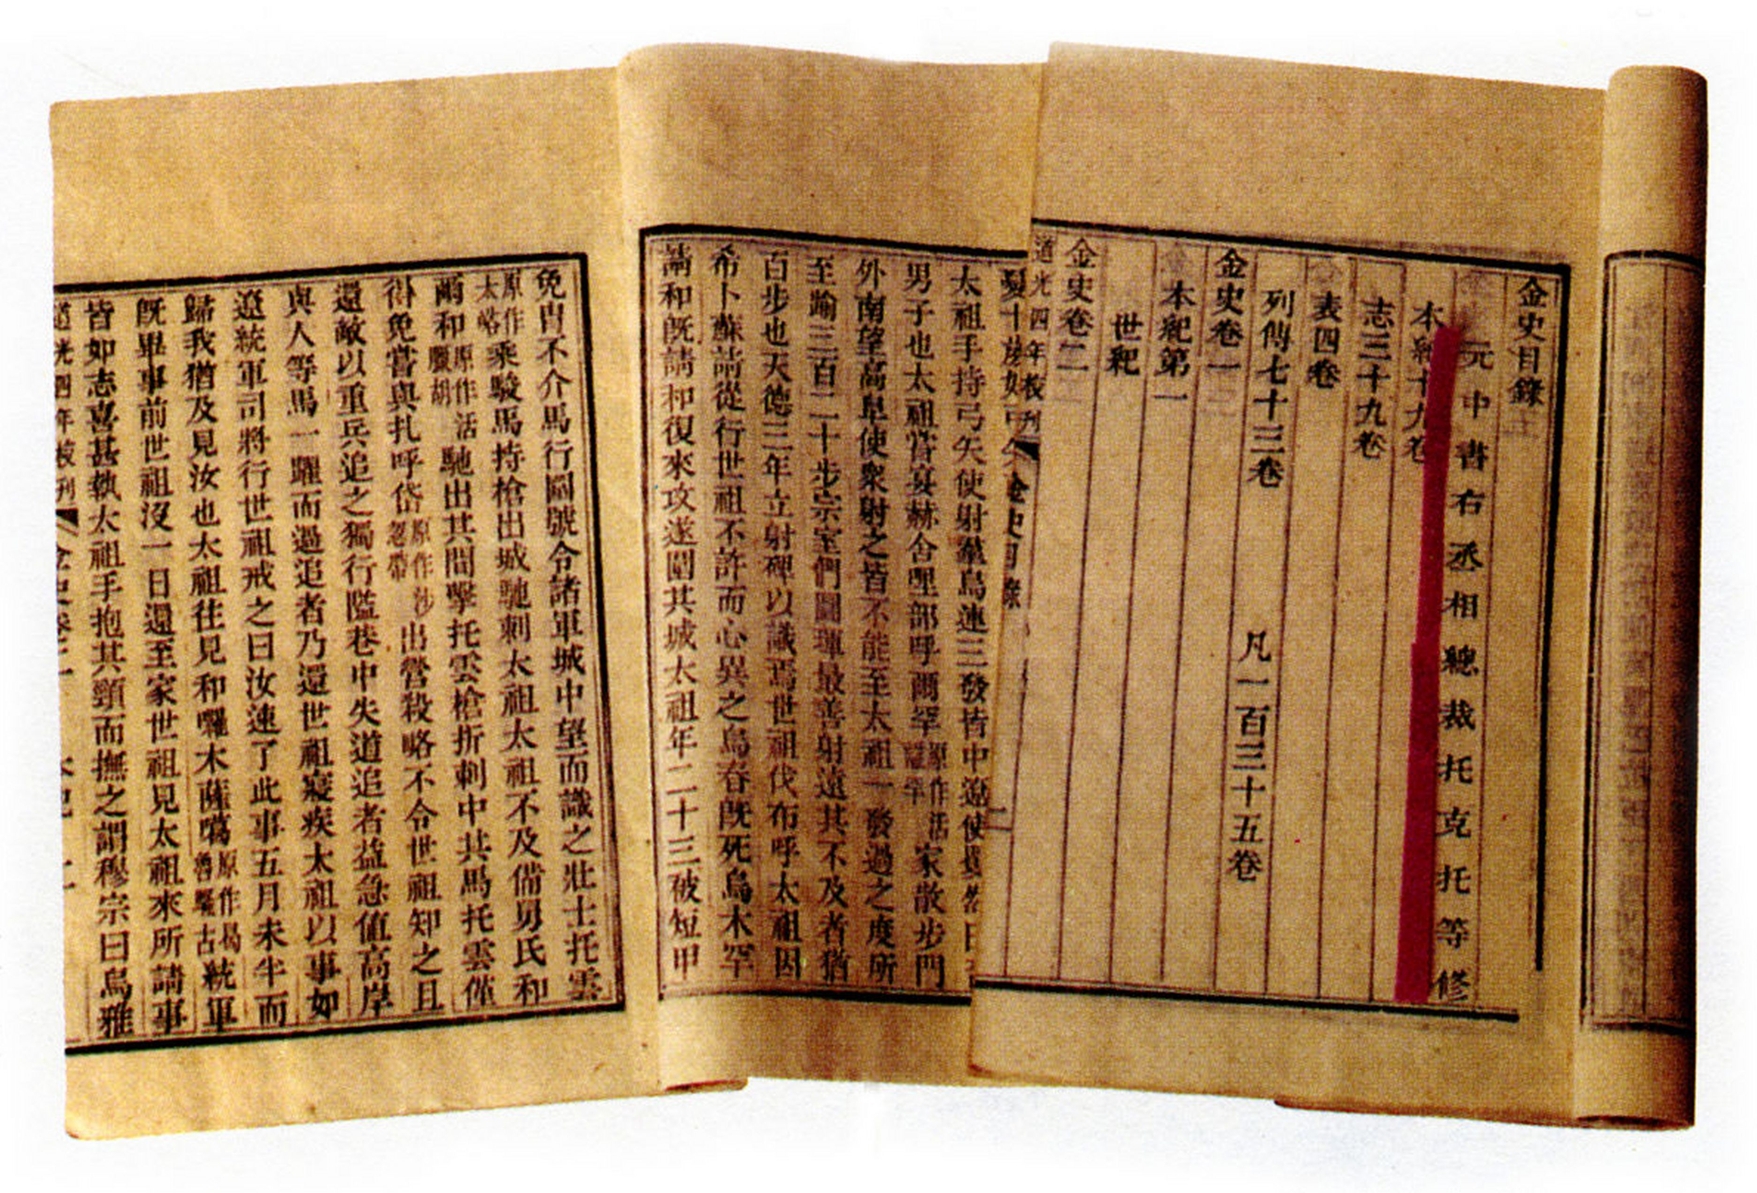 金史目錄
元中書右丞相總裁托克托等修
本紀十九卷
志三十九卷
表四卷
列傳七十三卷 凡一百三十五卷
金史卷一
本紀第一
世紀
金史卷二
道光四年校刊 金史目錄
太祖手持弓矢使射羣鳥連三發皆中遼使
男子也太祖嘗宴赫舍哩部呼爾罕原作活離罕家散步門
外南望高阜使衆射之皆不能至太祖一發過之度所
至踰三百二十步宗室們圖琿最善射遠其不及者猶
百步也天德三年立射碑以識焉世祖伐布呼太祖因
希卜蘇請從行世祖不許而心異之烏春旣死烏木罕
請和旣請和復來攻遂圍其城太祖年二十三被短甲
免冑不介馬行圍號令諸軍城中望而識之壯士托雲
原作太峪乘駿馬持槍出城馳刺太祖太祖不及備舅氏和
爾和原作活臘胡馳出其間擊托雲槍折刺中其馬托雲僅
得免嘗與扎呼岱原作沙忽帶出營殺略不令世祖知之且
還敵以重兵追之獨行隘巷中失道追者益急值高岸
與人等馬一躍而過追者乃還世祖寢疾太祖以事如
遼統軍司將行世祖戒之曰汝速了此事五月未半而
歸我猶及見汝也太祖往見和囉木薩噶原作曷魯騷古統軍
旣畢事前世祖沒一日還至家世祖見太祖來所請事
皆如志喜甚執太祖手抱其頸而撫之謂穆宗曰烏雅
道光四年校刊 金史卷二 本紀 二